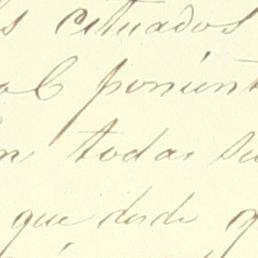 s situados
al poniente
en todas su
que desde q